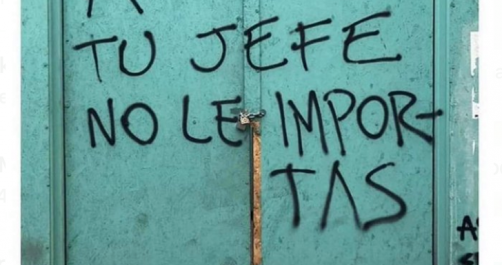 A
TU JEFE
NO LE IMPOR-
TAS